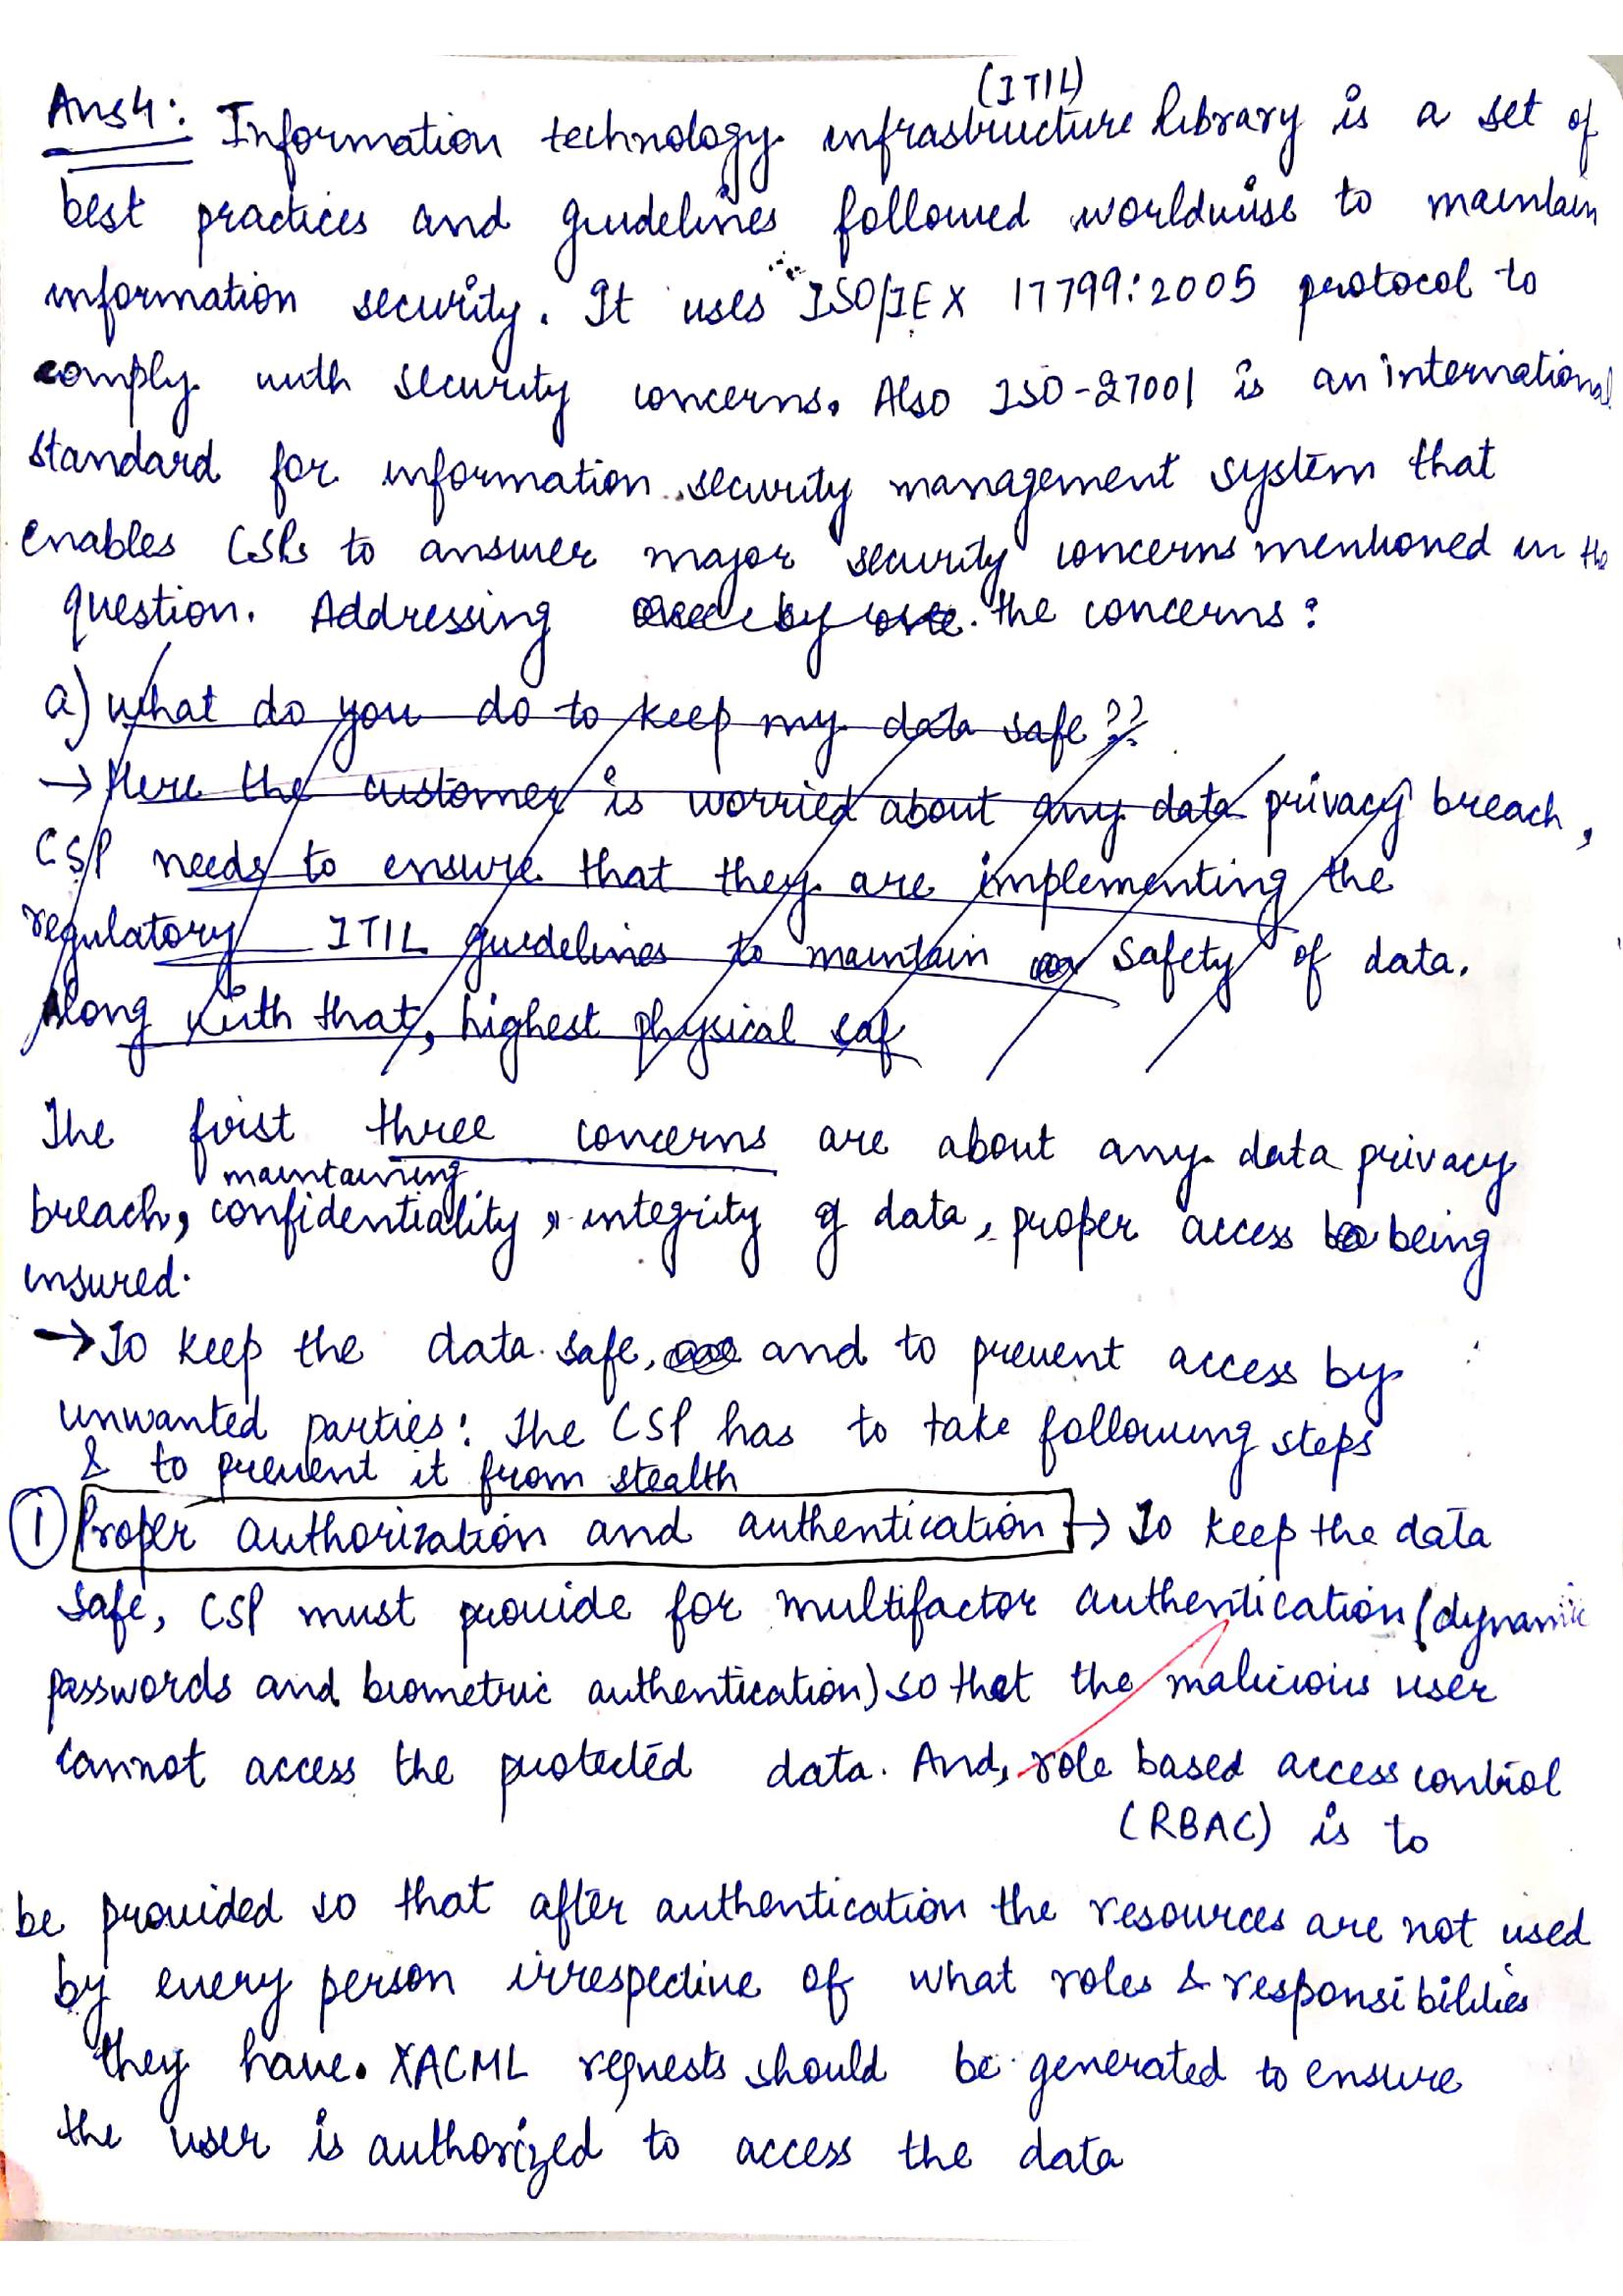 (ITIL)
Ans4: Information technology infrastructure library is a set of
best practices and guidelines followed worldwise to maintain
information security. It uses ISO/IEX 17799:2005 protocol to
comply with security concerns. Also ISO-27001 is an international
standard for information security management system that
enables CSPs to answer major security concerns mentioned in the
question. Addressing one by one the concerns:
a) what do you do to keep my data safe??
→ Here the customer is worried about any data privacy breach,
CSP needs to ensure that they are implementing the
regulatory ITIL guidelines to maintain safety of data.
Along with that, highest physical saf
The first three concerns are about any data privacy
maintaining
breach, confidentiality, integrity of data, proper access being
insured.
→ To keep the data safe, and to prevent access by
unwanted parties: The CSP has to take following steps
& to prevent it from stealth
① Proper authorization and authentication → To keep the data
safe, CSP must provide for multifactor authentication (dynamic
passwords and biometric authentication) so that the malicious user
cannot access the protected data. And, role based access control
(RBAC) is to
be provided so that after authentication the resources are not used
by every person irrespective of what roles & responsibilities
they have. XACML requests should be generated to ensure
the user is authorized to access the data